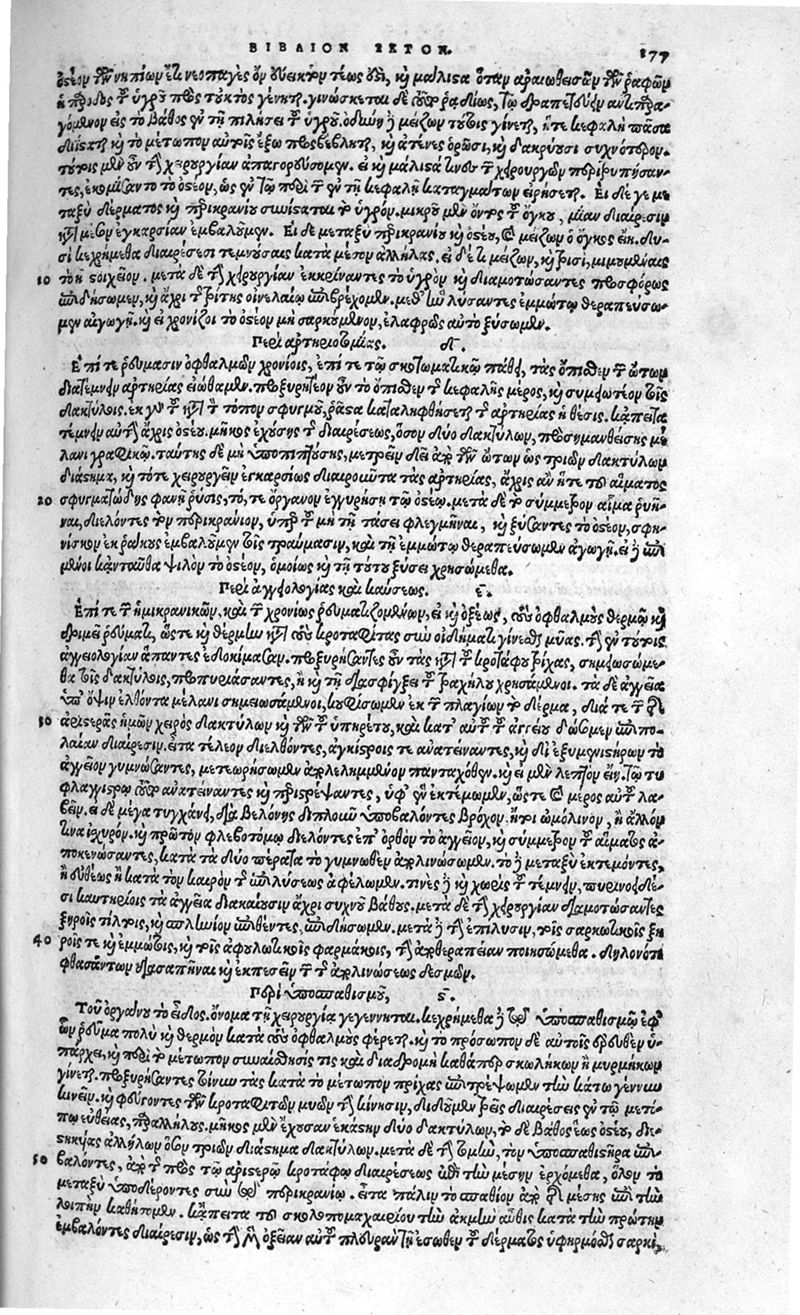 ΒΙΒΛΙΟΝ ΕΚΤΟΝ. 177
ὀστέον τῶν νηπίων ἔτι νεοπαγὲς ὂν οὐ εἰκτὸν τέως ἐστὶ, καὶ μάλιστα ὅταν ἀραιωθεισῶν τῶν ῥαφῶν
ἡ πρόοδος τοῦ ὑγροῦ πρὸς τὸ ἐκτὸς γένηται. γινώσκεται δὲ τοῦτο ῥᾳδίως, τῷ δραπετεύειν ἀντιπαρα-
γόμενον εἰς τὸ βάθος ἐν τῇ πιλήσει τοῦ ὑγροῦ. ὀδύνη μείζων τούτοις γίνεται, ἥ τε κεφαλὴ πᾶσα
καὶ τὸ μέτωπον αὐτοῖς ἔξω προβέβληται, καὶ ἀτενὲς ὁρῶσι, καὶ δακρύουσι συχνότερον.
τούτοις μὲν οὖν τὴν χειρουργίαν ἀπαγορεύσομεν. εἰ καὶ μάλιστά τινες τῶν χειρουργῶν περιτρυπήσαν-
τες, ἐκομίσαντο τὸ ὀστέον, ὡς ἐν τῷ περὶ τῶν ἐν τῇ κεφαλῇ καταγμάτων εἰρήσεται. Εἰ δέ γε με
ταξὺ δέρματος καὶ περικρανίου συνίσταται τὸ ὑγρὸν, μικροῦ μὲν ὄντος τοῦ ὄγκου, μίαν διαίρεσιν
κατὰ μέσον ἐγκαρσίαν ἐμβαλοῦμεν. Εἰ δὲ μεταξὺ περικρανίου καὶ ὀστέου, καὶ μείζων ὁ ὄγκος εἴη, δυ-
σὶ κεχρήμεθα διαιρέσεσι τεμνούσαις κατὰ μέσον ἀλλήλας. εἰ δ' ἔτι μείζων, καὶ τρισὶ, μιμουμέναις
10 τὸ η στοιχεῖον. μετὰ δὲ τὴν χειρουργίαν ἐκκρίναντες τὸ ὑγρὸν καὶ διαμοτώσαντες προσφόρως
ἐπιδήσωμεν, καὶ ἄχρι τῆς τρίτης οἰνελαίῳ ἐπιβρέχομεν. μεθ' ἣν λύσαντες ἐμμότῳ θεραπεύσω-
μεν ἀγωγῇ. καὶ εἰ χρονίζοι τὸ ὀστέον μὴ σαρκούμενον, ἐλαφρῶς αὐτὸ ξύσωμεν.
Περὶ ἀρτηριοτομίας. δ.
Ἐπί τε ῥεύμασιν ὀφθαλμῶν χρονίοις, ἐπί τε τῷ σκοτωματικῷ πάθει, τὰς ὄπισθεν τῶν ὤτων
διατέμνειν ἀρτηρίας εἰώθαμεν. προξυρητέον οὖν τὸ ὄπισθεν τῆς κεφαλῆς μέρος, καὶ συμψωτέον τοῖς
δακτύλοις. ἐκ γὰρ τοῦ κατὰ τὸν τόπον σφυγμοῦ, ῥᾷστα καταληφθήσεται τῆς ἀρτηρίας ἡ θέσις. κἄπειτα
τέμνειν αὐτὴν ἄχρις ὀστέου. μῆκος ἐχούσης τῆς διαιρέσεως, ὅσον δύο δακτύλων, προσημανθείσης μέ
λανι γραφικῷ. ταύτης δὲ μὴ ὑποπιπτούσης, μετρεῖν δεῖ ἀπὸ τῶν ὤτων ὡς τριῶν δακτύλων
διάστημα, καὶ τότε χειρουργεῖν ἐγκαρσίως διαιροῦντα τὰς ἀρτηρίας, ἄχρις ἂν ἥ τε τοῦ αἵματος
20 σφυγματώδης φανῇ ῥύσις, τό, τε ὄργανον ἐγκυρήσῃ τῷ ὀστέῳ. μετὰ δὲ τὸ σύμμετρον αἷμα ῥυῆ-
ναι, διελόντες τὸν περικράνιον, ὑπὲρ τοῦ μὴ τῇ τάσει φλεγμῆναι, καὶ ξύσαντες τὸ ὀστέον, σφη-
νίσκον ἐκ ῥάκους ἐμβαλοῦμεν τοῖς τραύμασιν, καὶ τῇ ἐμμότῳ θεραπεύσωμεν ἀγωγῇ. εἰ δὲ ἐπι
μένοι κἀνταῦθα ψιλὸν τὸ ὀστέον, ὁμοίως καὶ τῇ τούτου ξύσει χρησώμεθα.
Περὶ ἀγγειολογίας καὶ καύσεως. ε.
Ἐπί τε τῶν ἡμικρανικῶν, καὶ τῶν χρονίως ῥευματιζομένων, εἰ καὶ ὀξέως, τοὺς ὀφθαλμοὺς θερμῷ καὶ
δριμεῖ ῥεύματι, ὥστε καὶ θερμὴν κατὰ τοὺς κροταφίτας σὺν οἰδήματι γίνεσθαι μύας. τὴν ἐν τούτοις
ἀγγειολογίαν ἅπαντες ἐδοκίμασαν. προξυρήσαντες οὖν τὰς κατὰ τοῦ κροτάφου τρίχας, σημειωσώμε-
θα τοῖς δακτύλοις, προπυριάσαντες, ἢ καὶ τῇ διασφίγξει τοῦ τραχήλου χρησάμενοι. τὰ δὲ ἀγγεῖα
ὑπ' ὄψιν ἐλθόντα μέλανι σημειωσάμενοι, κουφίσωμεν ἐκ τῶν πλαγίων τὸ δέρμα, διά τε τῶν τῆς
30 ἀριστερᾶς ἡμῶν χειρὸς δακτύλων καὶ τῶν τοῦ ὑπηρέτου, καὶ κατ' αὐτοῦ τοῦ ἀγγείου δῶμεν ἐπιπο-
λαίαν διαίρεσιν. εἶτα τέλεον διελθόντες, ἀγκίστροις τε ἀνατείναντες, καὶ δι' ἐξυμενιστήρων τὸ
ἀγγεῖον γυμνώσαντες, μετεωρήσωμεν ἀπολελημμένον πανταχόθεν. καὶ εἰ μὲν λεπτὸν εἴη, τῷ τυ
φλαγκίστρῳ τοῦτο ἀνατείναντες καὶ περιστρέψαντες, ὑφ' ἓν ἐκτέμωμεν, ὥστε καὶ μέρος αὐτοῦ λα-
βεῖν. εἰ δὲ μέγα τυγχάνει, διὰ βελόνης διπλοῦν ὑποβαλόντες βρόχον. ἤτοι ὠμόλινον, ἢ ἄλλον
τινὰ ἰσχυρόν. καὶ πρῶτον φλεβοτόμῳ διελόντες ἐπ' ὀρθὸν τὸ ἀγγεῖον, καὶ σύμμετρον τοῦ αἵματος ἀ-
ποκενώσαντες, κατὰ τὰ δύο πέρατα τὸ γυμνωθὲν ἀπολινώσωμεν. τὸ δὲ μεταξὺ ἐκτεμόντες,
ἢ εὐθέως ἢ κατὰ τὸν καιρὸν τῆς ἐπιλύσεως ἀφέλωμεν. τινὲς δὲ καὶ χωρὶς τοῦ τέμνειν, πυρηνοειδέ-
σι καυτηρίοις τὰ ἀγγεῖα διακαίουσιν ἄχρι συχνοῦ βάθους. μετὰ δὲ τὴν χειρουργίαν διαμοτώσαντες
ξηροῖς τιλτοῖς, καὶ σπληνίον ἐπιθέντες, ἐπιδήσωμεν. μετὰ δὲ τὴν ἐπίλυσιν, τοῖς σαρκωτικοῖς ξη
40 ροῖς τε καὶ ἐμμότοις, καὶ τοῖς ἀφουλωτικοῖς φαρμάκοις, τὴν ἀποθεραπείαν ποιησώμεθα. δηλονότι
φθασάντων διασαπῆναι καὶ ἐκπεσεῖν τῶν τῆς ἀπολινώσεως δεσμῶν.
Περὶ ὑποσπαθισμοῦ, ς.
Τοῦ ὀργάνου τὸ εἶδος. ὄνομα τῇ χειρουργίᾳ γεγέννηται. κεχρήμεθα δὲ τῷ ὑποσπαθισμῷ ἐφ'
ὧν ῥεῦμα πολὺ καὶ θερμὸν κατὰ τοὺς ὀφθαλμοὺς φέρεται. καὶ τὸ πρόσωπον δὲ αὐτοῖς ἐρευθὲν ὑ-
πάρχει, καὶ περὶ τὸ μέτωπον συναίσθησίς τις καὶ διαδρομὴ καθάπερ σκωλήκων ἢ μυρμήκων
γίνεται. προξυρήσαντες τοίνυν τὰς κατὰ τὸ μέτωπον τρίχας ἐπιτρέψωμεν τὴν κάτω γέννυν
κινεῖν. καὶ φεύγοντες τῶν κροταφιτῶν μυῶν τὴν κίνησιν, δίδομεν τρεῖς διαιρέσεις ἐν τῷ μετώ-
πῳ εὐθείας, παραλλήλους. μῆκος μὲν ἔχουσαν ἑκάστην δύο δακτύλων, τὸ δὲ βάθος ἕως ὀστέου, δι-
εστηκυίας ἀλλήλων ὅσον τριῶν διάστημα δακτύλων. μετὰ δὲ τὴν τομὴν, τὸν ὑποσπαθιστῆρα ἐμ-
50 βαλόντες, ἀπὸ τῆς πρὸς τῷ ἀριστερῷ κροτάφῳ διαιρέσεως ἐπὶ τὴν μέσην ἐρχόμεθα, ὅλον τὸ
μεταξὺ ὑποδέροντες σὺν τῷ περικρανίῳ. εἶτα πάλιν τὸ σπαθίον ἀπὸ τῆς μέσης ἐπὶ τὴν
λοιπὴν καθήσομεν. κἄπειτα τοῦ σκολοπομαχαιρίου τὴν ἀκμὴν αὖθις κατὰ τὴν πρώτην
ἐμβαλόντες διαίρεσιν, ὡς τὴν μὴ ὀξεῖαν αὐτοῦ πλευρὰν τῇ ἔσωθεν τοῦ δέρματος ὑφηρμόσθαι σαρκὶ,